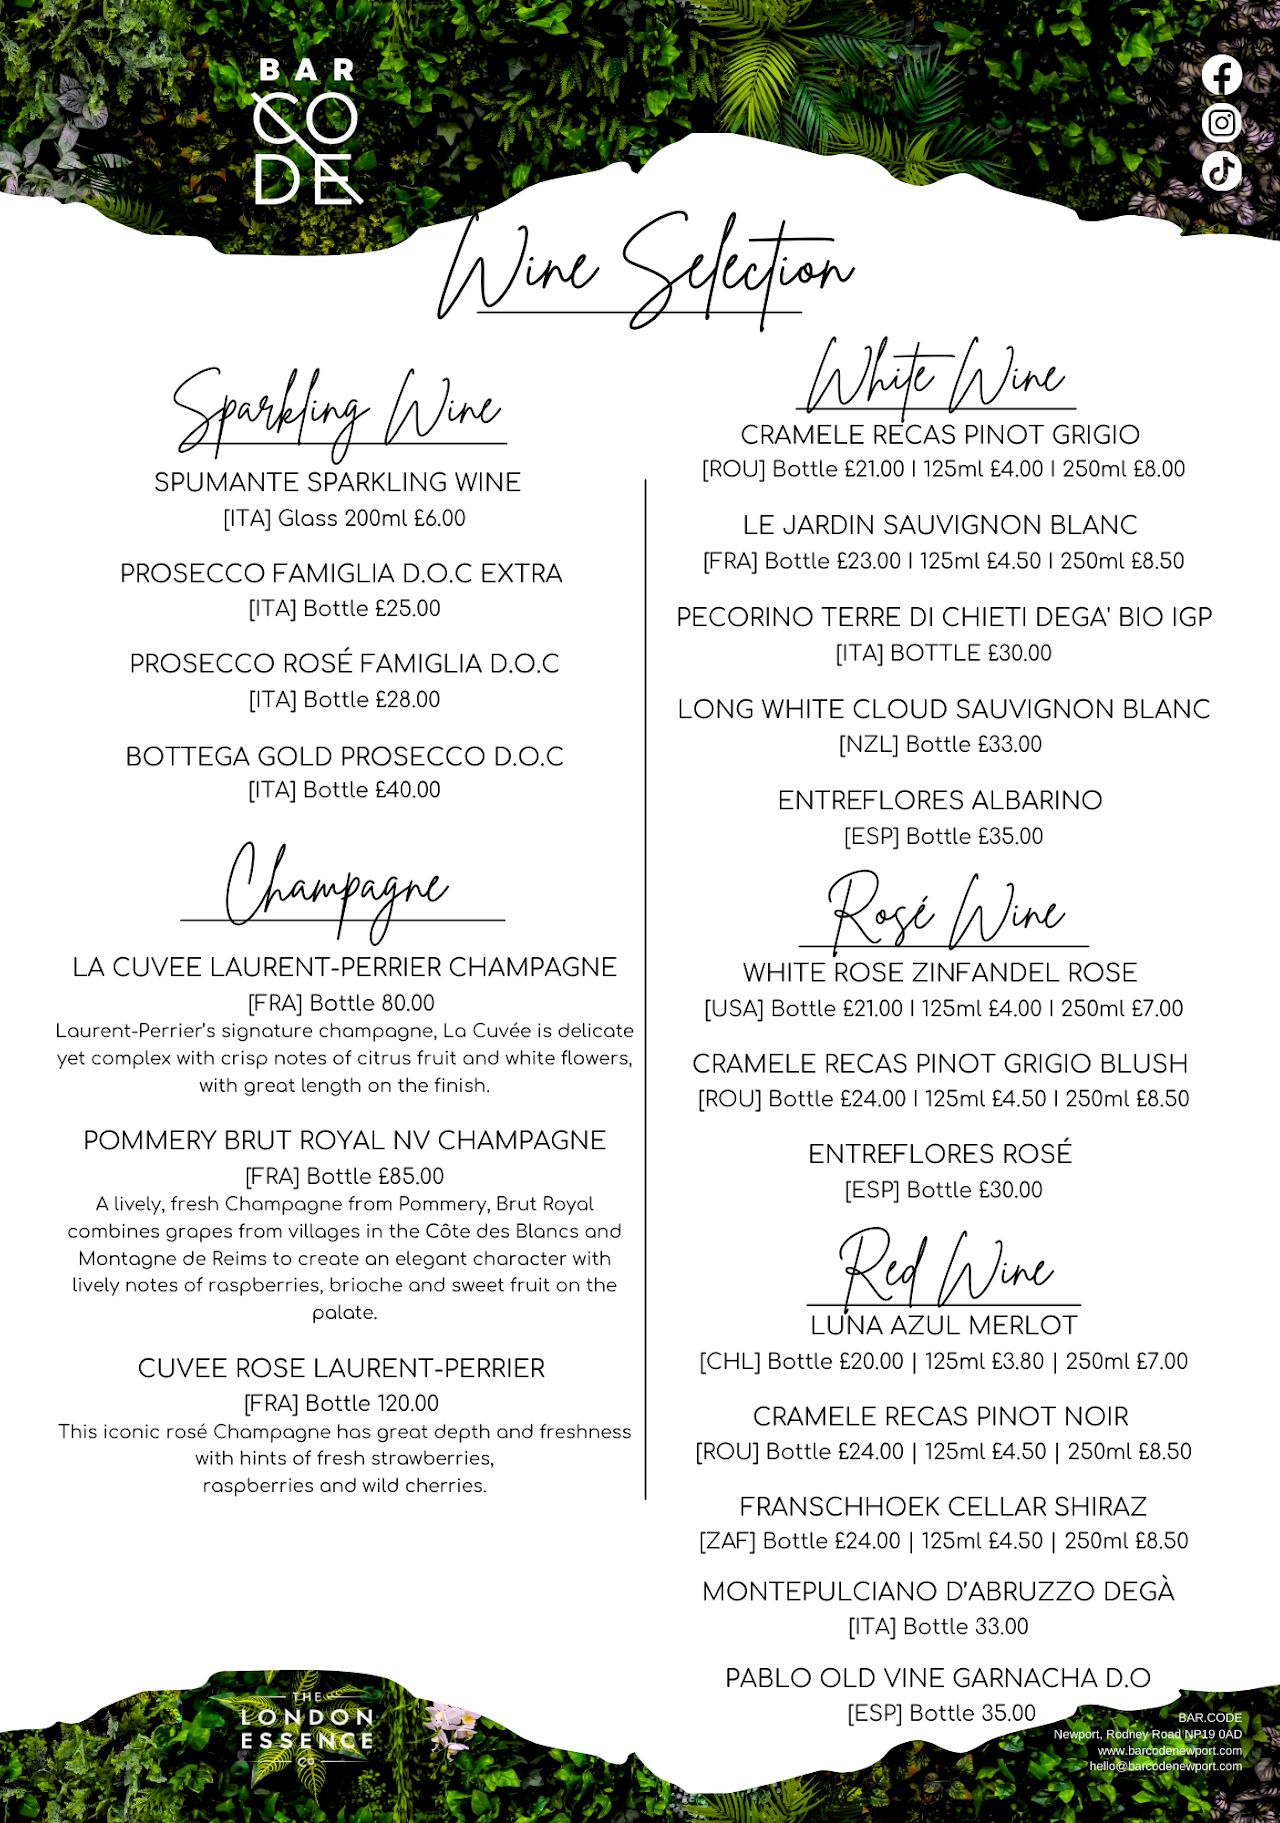 BAR
CO
DE
Wine Selection
Sparkling Wine
SPUMANTE SPARKLING WINE
[ITA] Glass 200ml £6.00
PROSECCO FAMIGLIA D.O.C EXTRA
[ITA] Bottle £25.00
PROSECCO ROSÉ FAMIGLIA D.O.C
[ITA] Bottle £28.00
BOTTEGA GOLD PROSECCO D.O.C
[ITA] Bottle £40.00
Champagne
LA CUVEE LAURENT-PERRIER CHAMPAGNE
[FRA] Bottle 80.00
Laurent-Perrier's signature champagne, La Cuvée is delicate
yet complex with crisp notes of citrus fruit and white flowers,
with great length on the finish.
POMMERY BRUT ROYAL NV CHAMPAGNE
[FRA] Bottle £85.00
A lively, fresh Champagne from Pommery, Brut Royal
combines grapes from villages in the Côte des Blancs and
Montagne de Reims to create an elegant character with
lively notes of raspberries, brioche and sweet fruit on the
palate.
CUVEE ROSE LAURENT-PERRIER
[FRA] Bottle 120.00
This iconic rosé Champagne has great depth and freshness
with hints of fresh strawberries,
raspberries and wild cherries.
White Wine
CRAMELE RECAS PINOT GRIGIO
[ROU] Bottle £21.00 | 125ml £4.00 | 250ml £8.00
LE JARDIN SAUVIGNON BLANC
[FRA] Bottle £23.00 | 125ml £4.50 | 250ml £8.50
PECORINO TERRE DI CHIETI DEGA' BIO IGP
[ITA] BOTTLE £30.00
LONG WHITE CLOUD SAUVIGNON BLANC
[NZL] Bottle £33.00
ENTREFLORES ALBARINO
[ESP] Bottle £35.00
Rosé Wine
WHITE ROSE ZINFANDEL ROSE
[USA] Bottle £21.00 | 125ml £4.00 | 250ml £7.00
CRAMELE RECAS PINOT GRIGIO BLUSH
[ROU] Bottle £24.00 | 125ml £4.50 | 250ml £8.50
ENTREFLORES ROSÉ
[ESP] Bottle £30.00
Red Wine
LUNA AZUL MERLOT
[CHL] Bottle £20.00 | 125ml £3.80 | 250ml £7.00
CRAMELE RECAS PINOT NOIR
[ROU] Bottle £24.00 | 125ml £4.50 | 250ml £8.50
FRANSCHHOEK CELLAR SHIRAZ
[ZAF] Bottle £24.00 | 125ml £4.50 | 250ml £8.50
MONTEPULCIANO D'ABRUZZO DEGÀ
[ITA] Bottle 33.00
PABLO OLD VINE GARNACHA D.O
[ESP] Bottle 35.00
THE
LONDON
ESSENCE
CO
BAR.CODE
Newport, Rodney Road NP19 0AD
www.barcodenewport.com
hello@barcodenewport.com